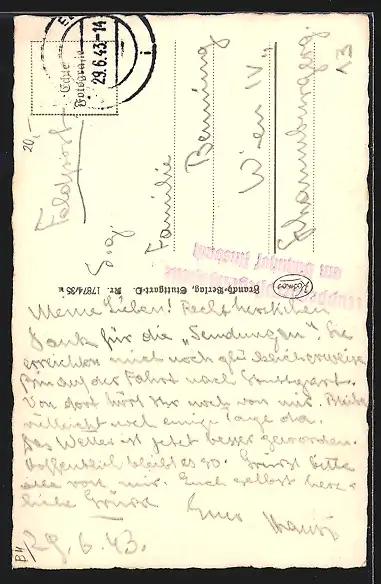 Echte
Fotografie
29.6.43-14
20,-
Feldpost
Familie
Benning
Wien IV
13
Brandy-Verlag, Stuttgart-D. Nr. 17874/35
Meine Lieben! Recht herzlichen
Dank für die „Sendungen". Sie
erreichten mich noch glücklicherweise
Bin auf der Fahrt nach Stuttgart.
Von dort hört Ihr noch von mir. Bleibe
vielleicht noch einige Tage da.
Das Wetter ist jetzt besser geworden.
Hoffentlich bleibt es so. Grüsst bitte
alle von mir. Euch selbst herz-
liche Grüsse
Euer
29.6.43.